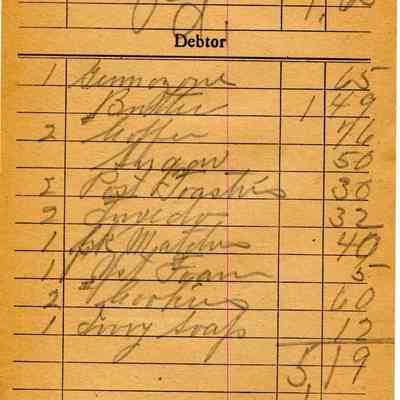 Debtor
1 65
Butter 1 49
2 Coffee 76
Sugar 50
2 Post Toasties 30
2 Tuxedo 32
1 pk Matches 40
1 Yst Foam 5
2 Cookies 60
1 Ivory Soap 12
5,19